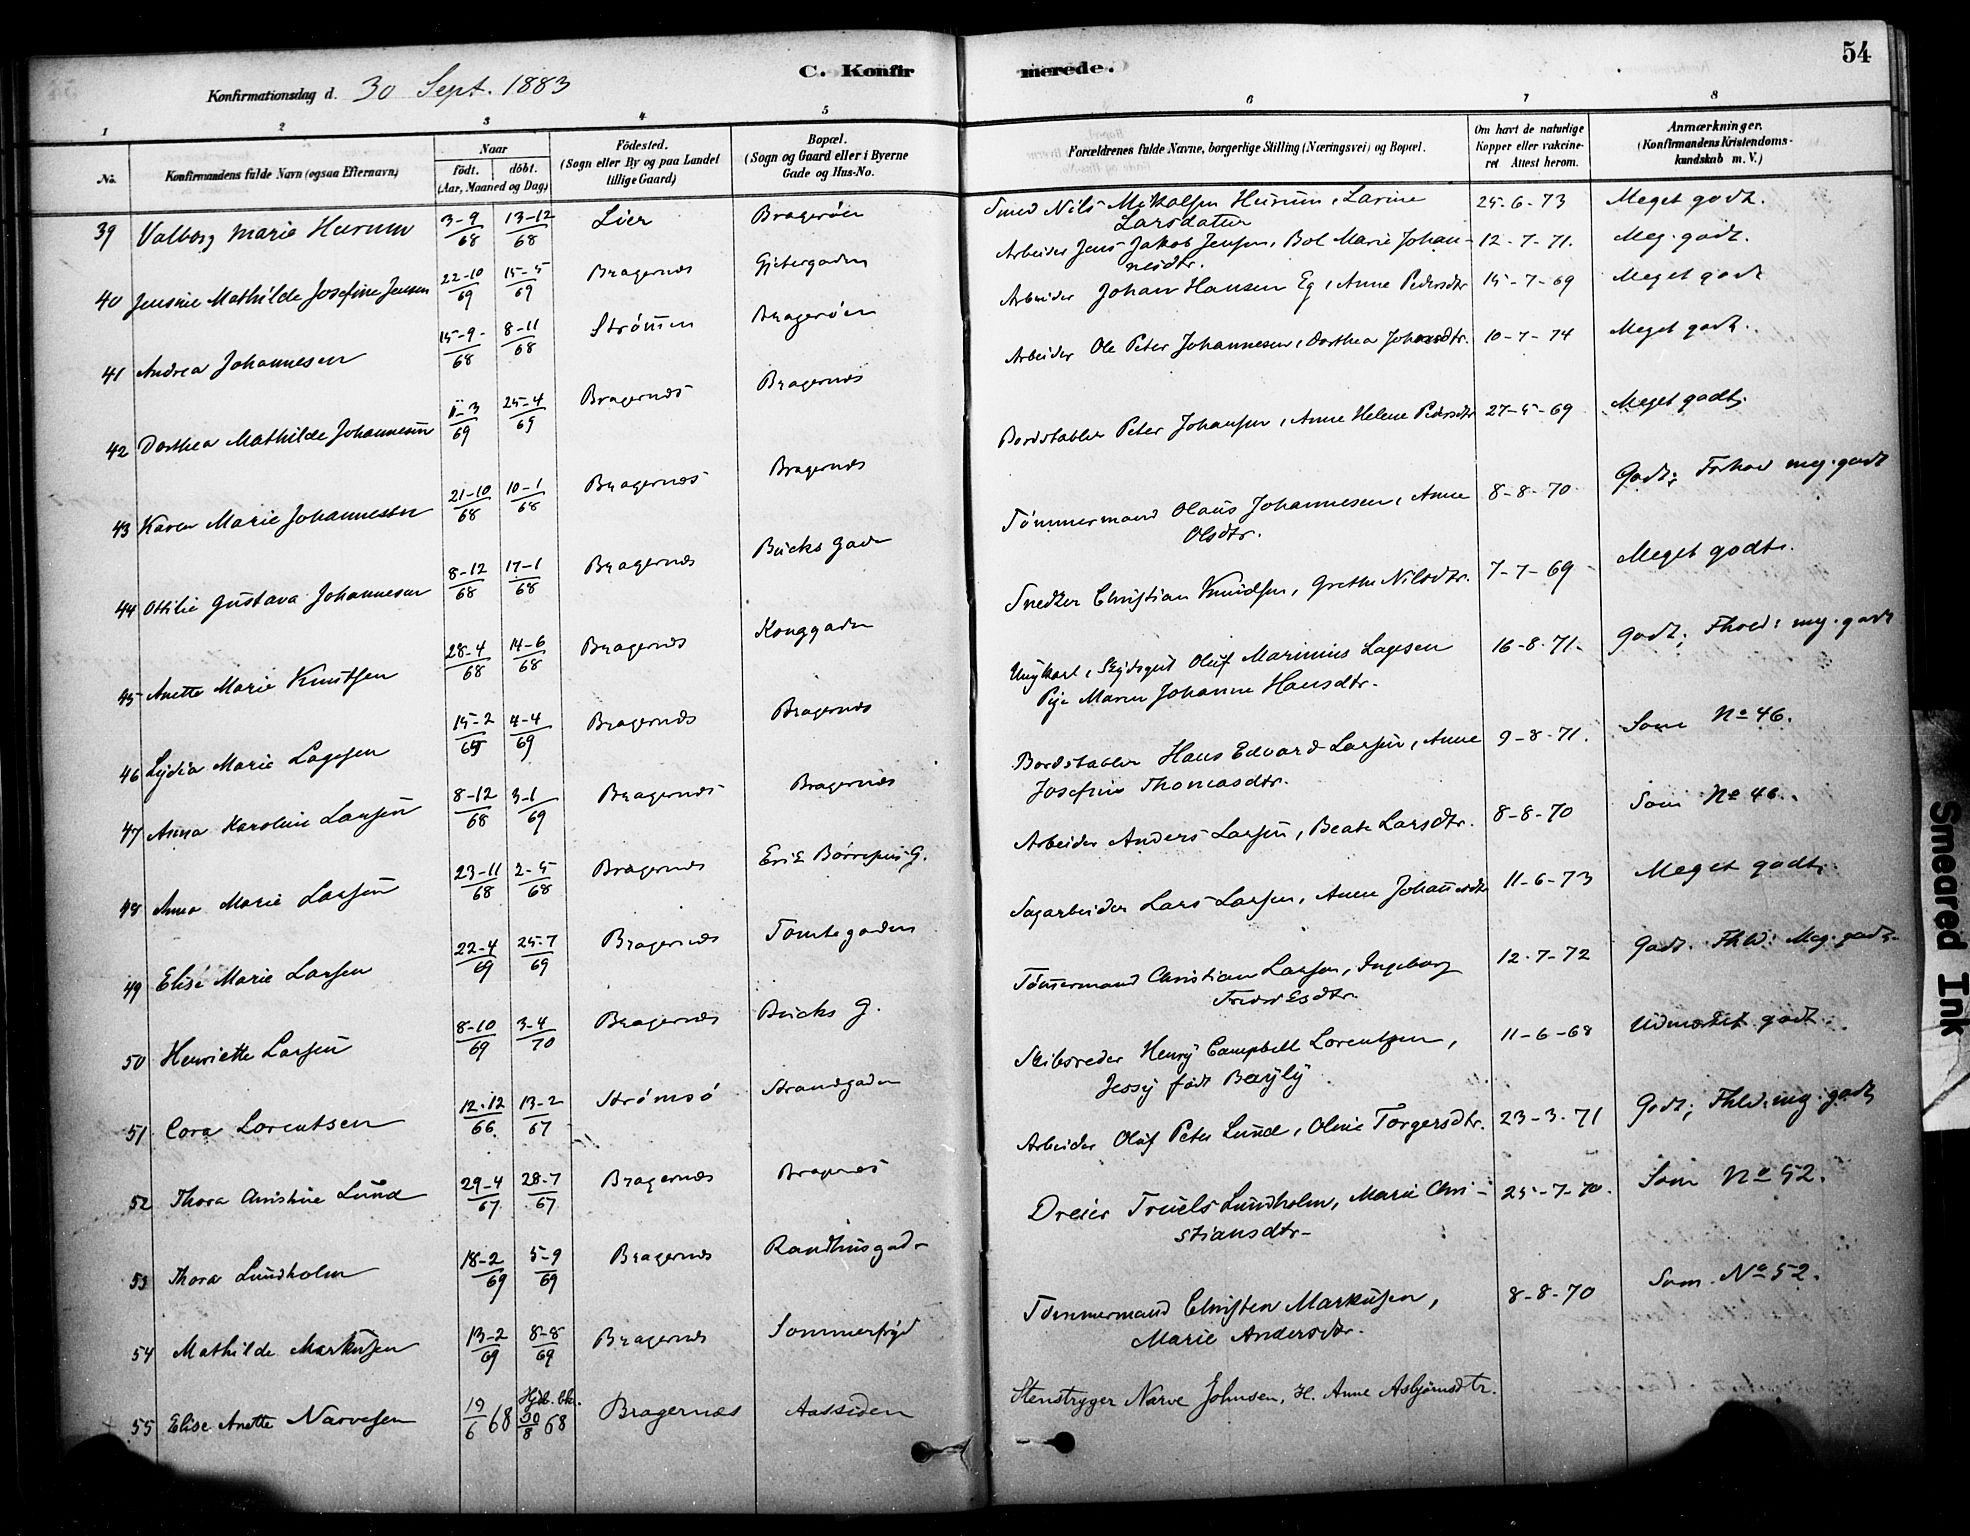 54
C. Konfirmerede.
Konfirmationsdag d. 30 Sept. 1883
1 2 3 4 5 6 7 8
No. Konfirmandens fulde Navn (ogsaa Efternavn) Naar Födt. döbt. (Aar, Maaned og Dag) Födested. (Sogn eller By og paa Landet tillige Gaard) Bopæl. (Sogn og Gaard eller i Byerne Gade og Hus-No. Forældrenes fulde Navne, borgerlige Stilling (Næringsvei) og Bopæl. Om havt de naturlige Kopper eller vaccineret Attest herom. Anmærkninger. (Konfirmandens Kristendomskundskab m. V.)
39 Valborg Marie Hurum 3-9/68 13-12/68 Lier Bragerøen Smed Nils Mikalsen Hurum, Larine Larsdatter 25-6-73 Meget godt.
40 Jensine Mathilde Josefine Jensen 22-10/69 15-5/69 Bragernæs Gjetergaden Arbeider Jens Jakob Jensen, Bol Marie Johannesdtr. 12-7-71. Meg. godt.
41 Andrea Johannesen 15-9-/68 8-11/68 Strömmen Bragerøen Arbeider Johan Hansen Eg, Anne Pedersdtr 15-7-69 Meget godt
42 Dorthea Mathilde Johannesen -3/69 25-4/69 Bragernæs Bragernæs Arbeider Ole Peter Johannesen, Dorthea Johansdtr. 10-7-74 Meget godt.
43 Karen Marie Johannessen 21-10/68 10-1/68 Bragernæs Bragernæs Bordstabler Peter Johansen, Anne Helene Pedersdtr 27-5-69 Meget godt.
44 Ottilie Gustava Johannesen 8-12/68 17-1/68 Bragernæs Bucks Gade Tømmermand Olaus Johannesen, Anne Olsdtr. 8-8-70 Godt; Forhold meg. godt
45 Anette Marie Knutsen 28-4/68 14-6/68 Bragernæs Konggaden Snedker Christian Knudsen, Grethe Nilsdtr. 7-7-69 Meget godt.
46 Lydia Marie Lagesen 15-2/69 4-4/69 Bragernæs Bragernæs Ungkarl, Skydsgut Oluf Marinius Lagesen Pige Maren Johanne Hansdtr. 16-8-71. Godt; Fhold: meg. godt
47 Anna Karoline Larsen 8-12/68 3-1/69 Bragernæs Bragernæs Bordstabler Hans Edvard Larsen, Anne Josefine Thomasdtr. 9-8-71. Som No 46.
48 Anna Marie Larsen 23-11/68 2-5/68 Bragernæs Erik Börresens G. Arbeider Anders Larsen, Beate Larsdtr. 8-8-70 Som No 46.
49 Elise Marie Larsen 22-4/69 25-7/69 Bragernæs Tomtegaden Sagarbeider Lars Larsen, Anne Johannesdtr 11-6-73 Meget godt.
50 Henriette Larsen 8-10/69 3-4/70 Bragernæs Bucks G. Tömmermand Christian Larsen, Ingeborg Fredriksdtr. 12-7-72 Godt. Fhld: Meg. godt.
51 Cora Lorentsen 12-12/66 13-2/67 Strømsø Strandgaden Skibsreder Henry Campbell Lorentzen, Jessy født Bayly 11-6-68 Udmærket godt
52 Thora Christine Lund 29-4/67 28-7/67 Bragernæs Bragernæs Arbeider Oluf Peter Lund, Oline Torgersdtr. 23-3-71 Godt; Fhld: meg. godt
53 Thora Lundholm 18-2/69 5-9/69 Bragernæs Raadhusgade Dreier Truels Lundholm, Marie Christiansdtr- 25-7-70. Som No 52.
54 Mathilde Markusen 13-2/69 8-8/69 Bragernæs Sommerfryd Tömmermand Christen Markusen, Marie Andersdtr. 8-8-70 Som No 52.
55 Elise Anette Narvesen 19/6 68 Hjd. bk. 30/8 68 Bragernæs Aassiden Stenstryger Narve Johnsen, H. Anne Asbjørnsdtr.
Smeared Ink